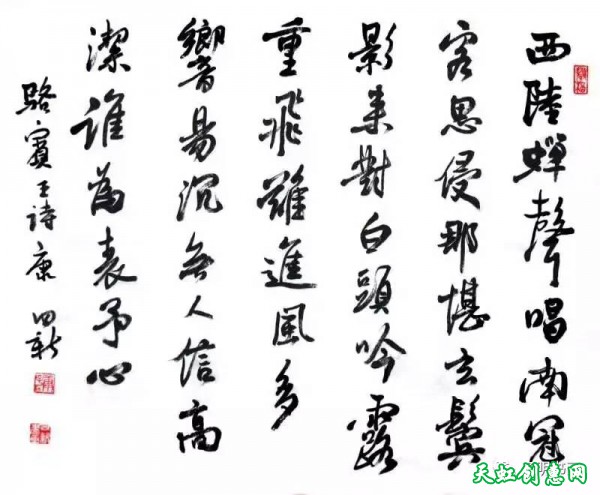 西陸蟬聲唱南冠
客思侵那堪玄鬢
影来對白頭吟露
重飛難進風多
響易沉無人信高
潔誰為表予心
駱賓王詩康 新
天虹创意网